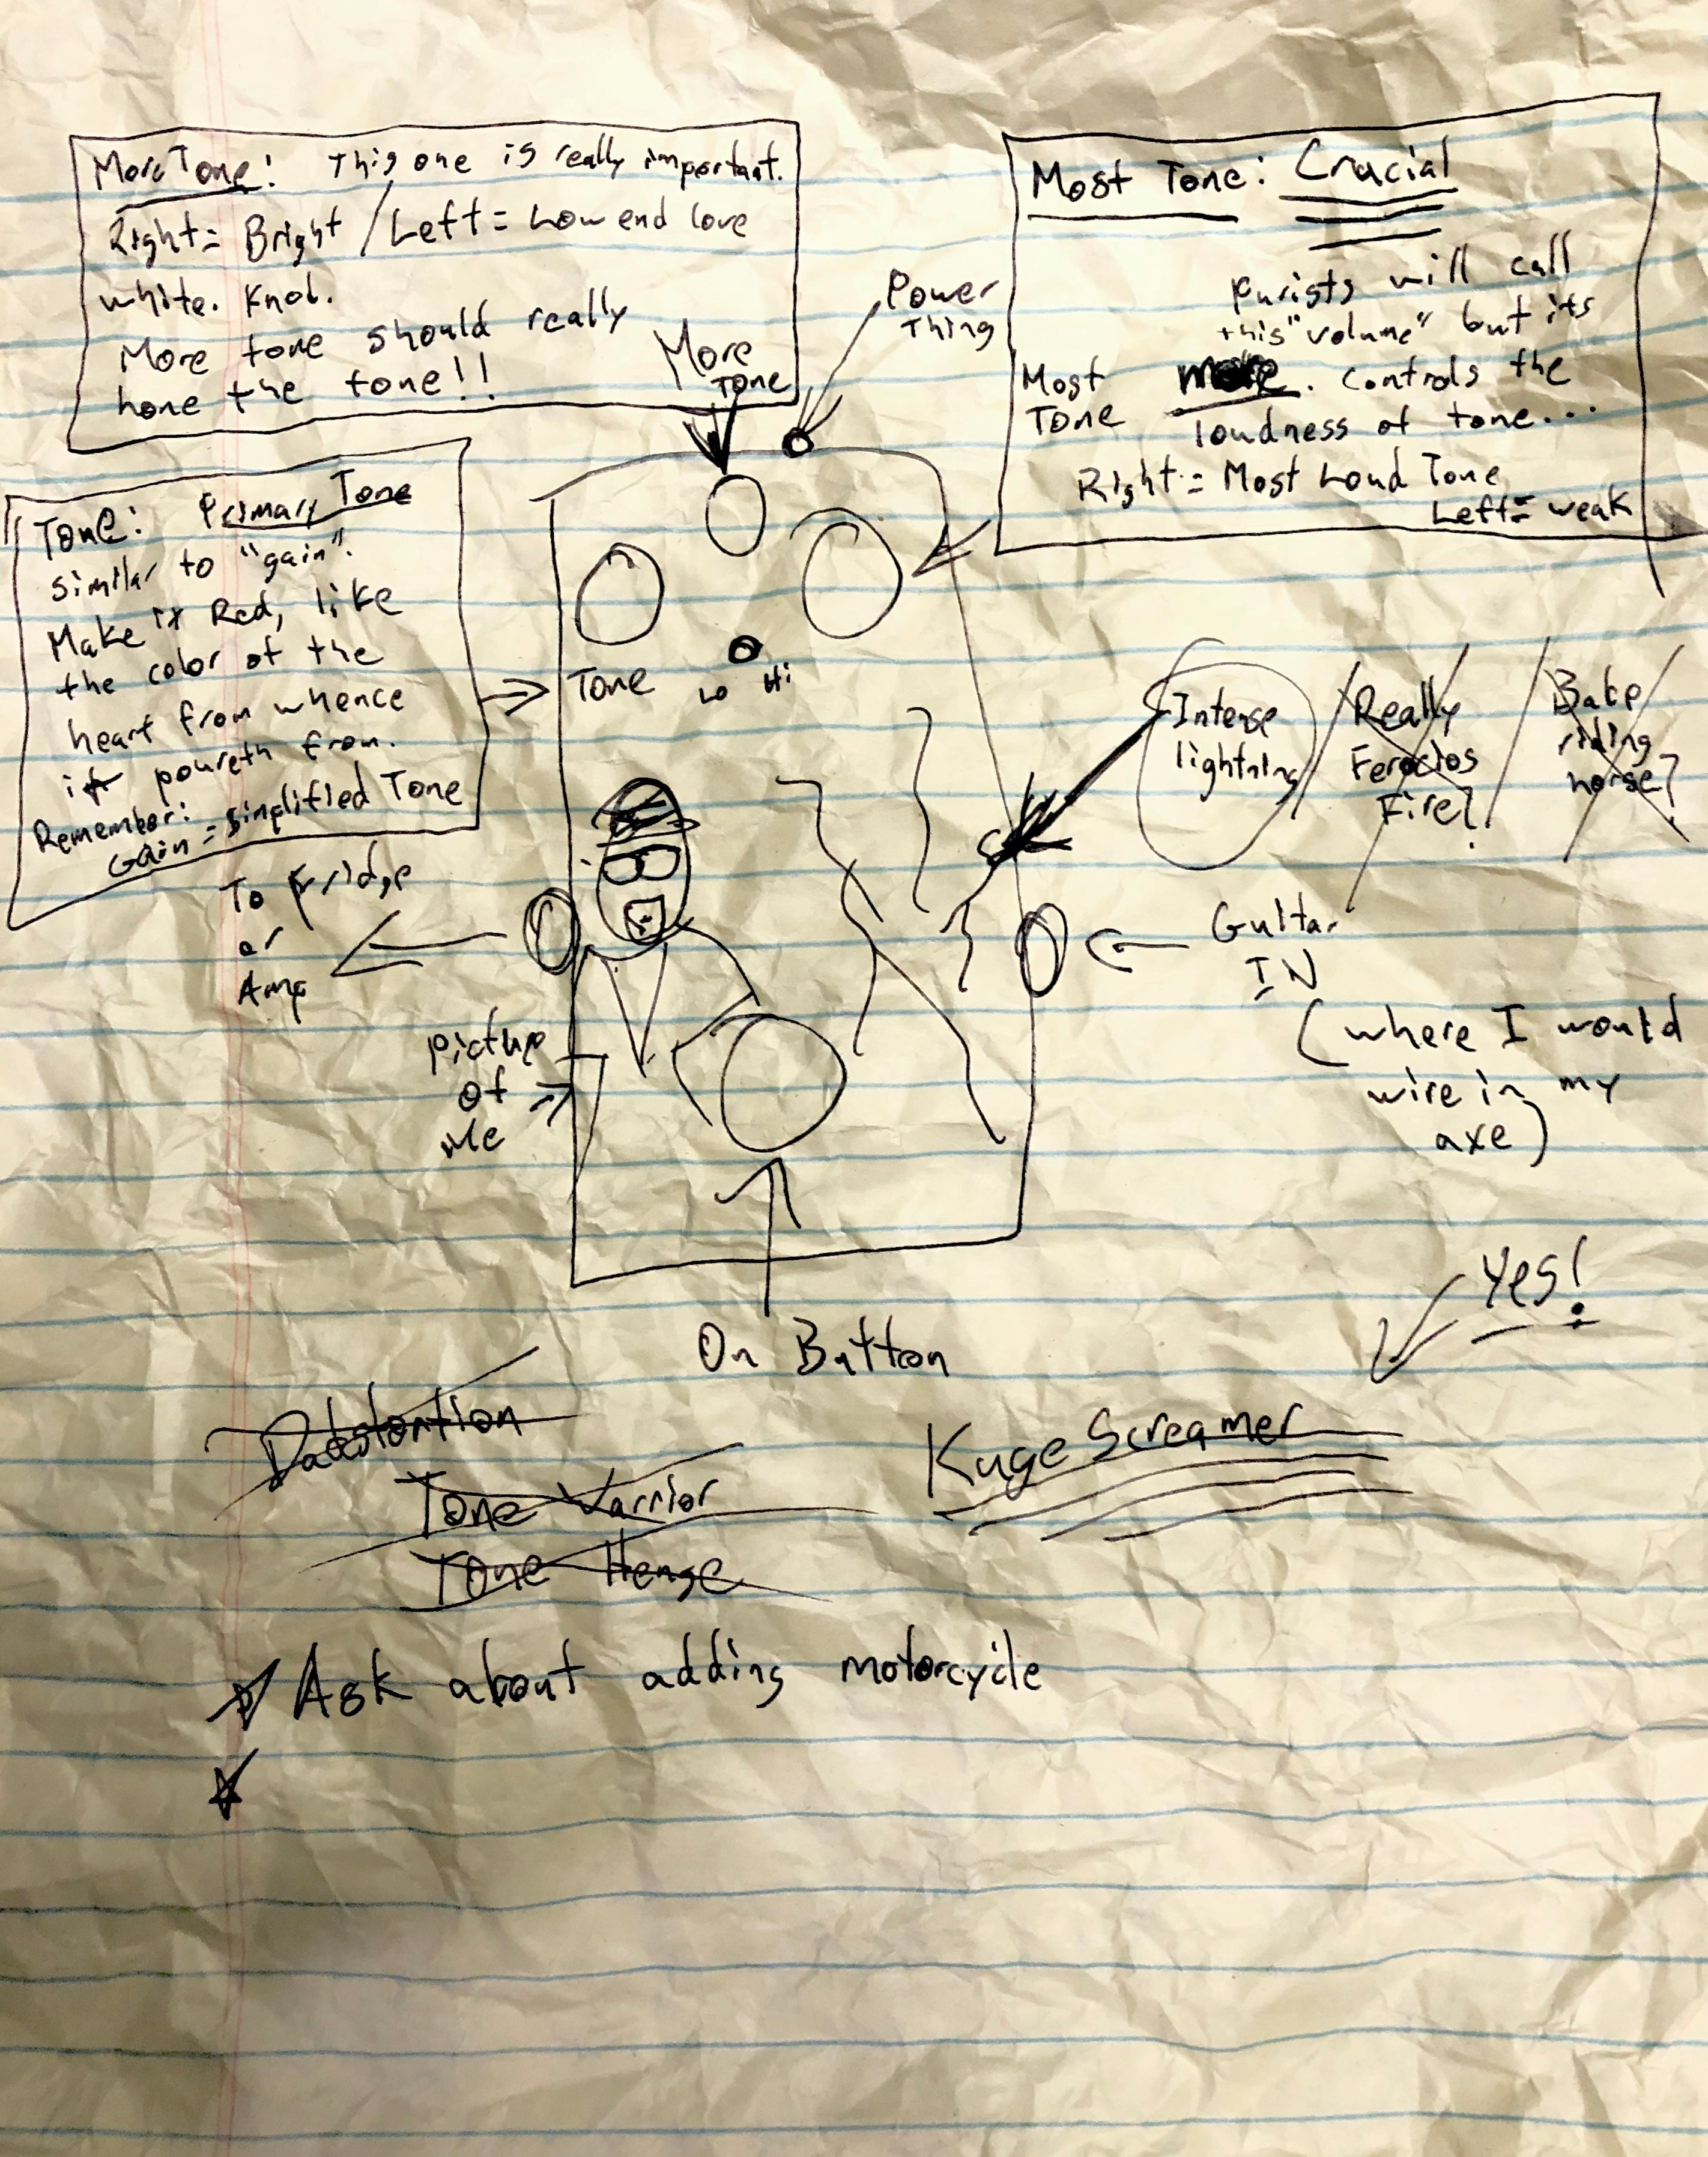 More Tone: This one is really important.
Right= Bright / Left= Low end love
white. Knob.
More tone should really
hone the tone!!
More
Tone
Power
Thing
Most Tone: Crucial
purists will call
this "volume" but its
more. controls the
loudness of tone...
Most
Tone
Right= Most Loud Tone
Left= weak
Tone: Primary Tone
similar to "gain".
Make it Red, like
the color of the
heart from whence
it poureth from.
Remember:
Gain = simplified Tone
Tone
Lo Hi
Intense
lightning
Really
Ferocios
Fire?
Babe
riding
horse?
To Fridge
or
Amp
Guitar
IN
(where I would
wire in my
axe)
pictur
of
Me
On Button
Yes!
Datstortion
Tone Warrior
Tone Henge
Kuge Screamer
Ask about adding motorcycle